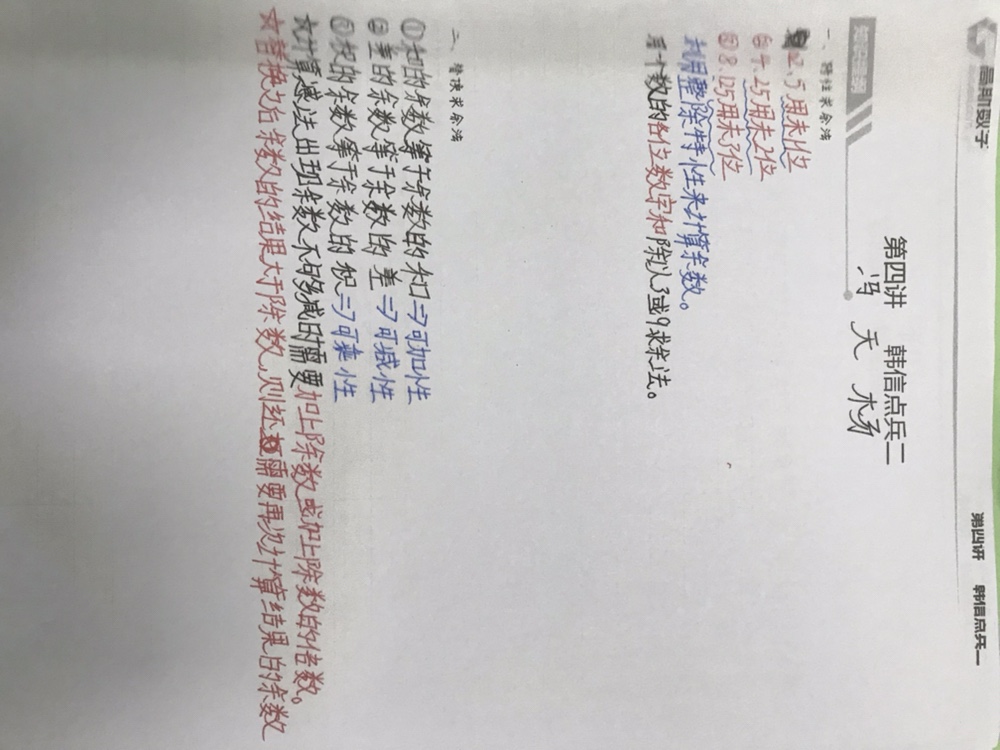 第四讲 韩信点兵二
第四讲 韩信点兵二
冯天杨
一、特性求余法
2.5用末1位
4.25用末2位
8.125用末3位
利用整除特性来计算余数。
看个数的各位数字和除以3或9求余法。
二、替换求余法
①和的余数等于余数的和⇒可加性
②差的余数等于余数的差⇒可减性
③积的余数等于余数的积⇒可乘性
☆计算减法出现余数不够减时需要加上除数或加上除数的倍数。
☆替换之后余数的结果大于除数,则还需要再次计算结果的余数